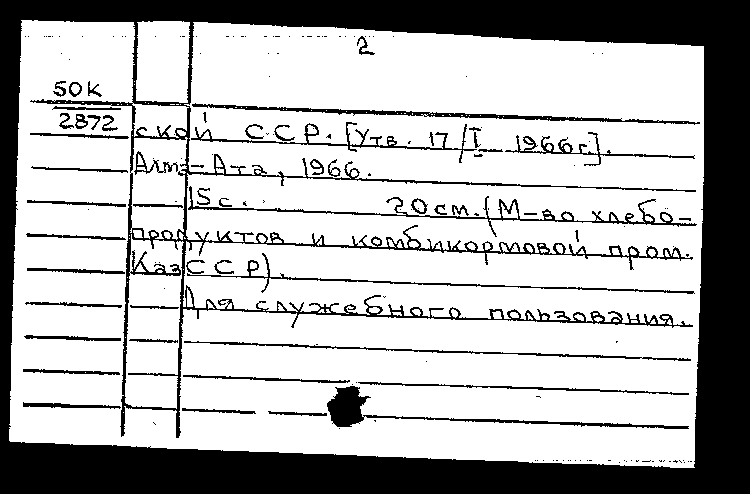 2
50К
2872
ской ССР. [Утв. 17/I 1966г.].
Алма-Ата, 1966.
15с. 20см. (М-во хлебо-
продуктов и комбикормовой пром.
КазССР).
Для служебного пользования.